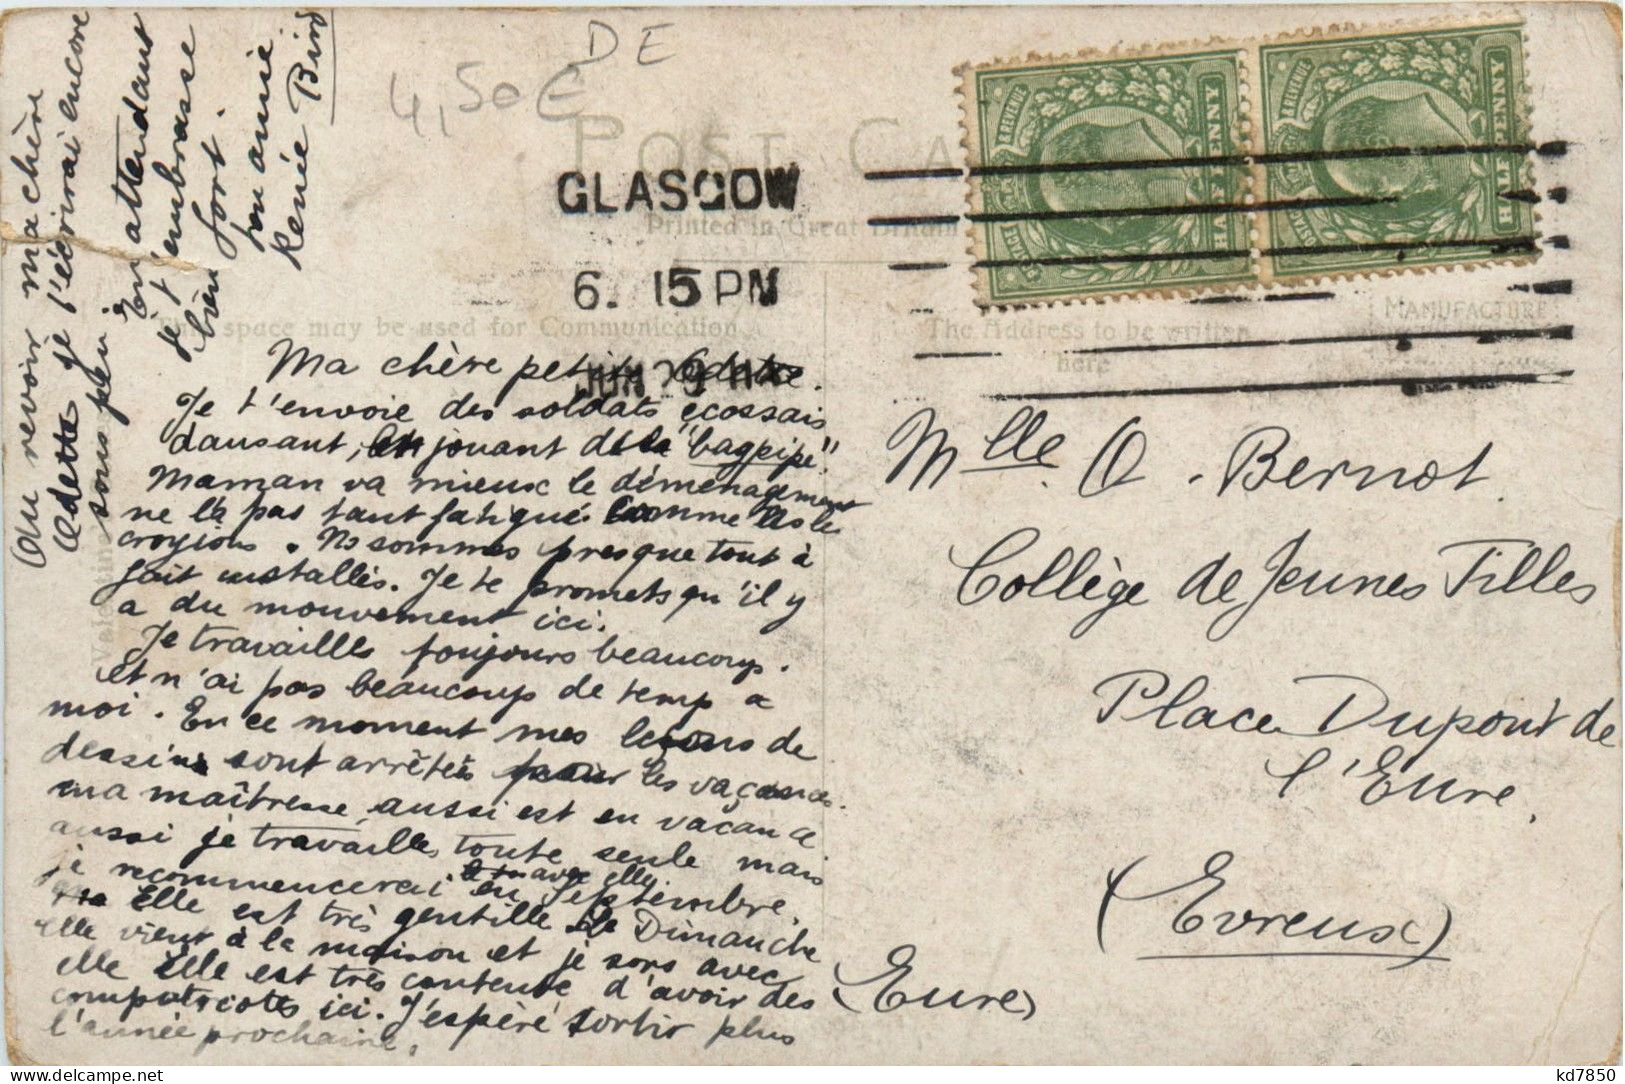 DE
4,50€
POST CA
Printed in Great Britain
GLASGOW
6. 15 PM
JUN 29
HALFPENNY
POSTAGE & REVENUE
HALFPENNY
POSTAGE & REVENUE
This space may be used for Communication
The Address to be written
here
MANUFACTURE
Ma chère petite Odette.
Je t'envoie des soldats ecossais
dansant, en jouant de la "bagpipe".
Maman va mieux le déménagement
ne l'a pas tant fatigué comme ns le
croyions. Ns sommes presque tout à
fait installés. Je te promets qu'il y
a du mouvement ici.
Je travaille toujours beaucoup.
et n'ai pas beaucoup de temp a
moi. En ce moment mes leçons de
dessin sont arrêtés pour les vaçances.
ma maîtresse aussi est en vacance
aussi je travaille toute seule mais
je recommencerai avec elle
en Septembre.
Elle est très gentille Le Dimanche
elle vient à la maison et je sors avec
elle Elle est très contente d'avoir des
compatriotes ici. J'espère sortir plus
l'année prochaine.
Au revoir ma chère
Odette je t'écrirai encore
sous peu.
En attendant
je t'embrasse
bien fort.
ton amie
Renée Bird
Mlle O. Bernot
Collège de Jeunes Filles
Place Dupont de
l'Eure.
(Evreux)
(Eure)
kd7850